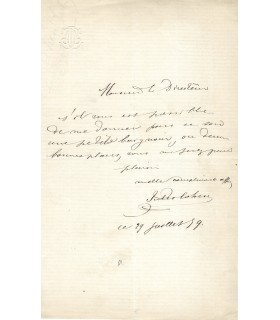 Monsieur le Directeur
s'il vous est possible
de me donner pour ce soir
une petite baignoire, ou deux
bonnes places, vous me ferez grand
plaisir
mille
Jules Cohen
ce 29 juillet 79.